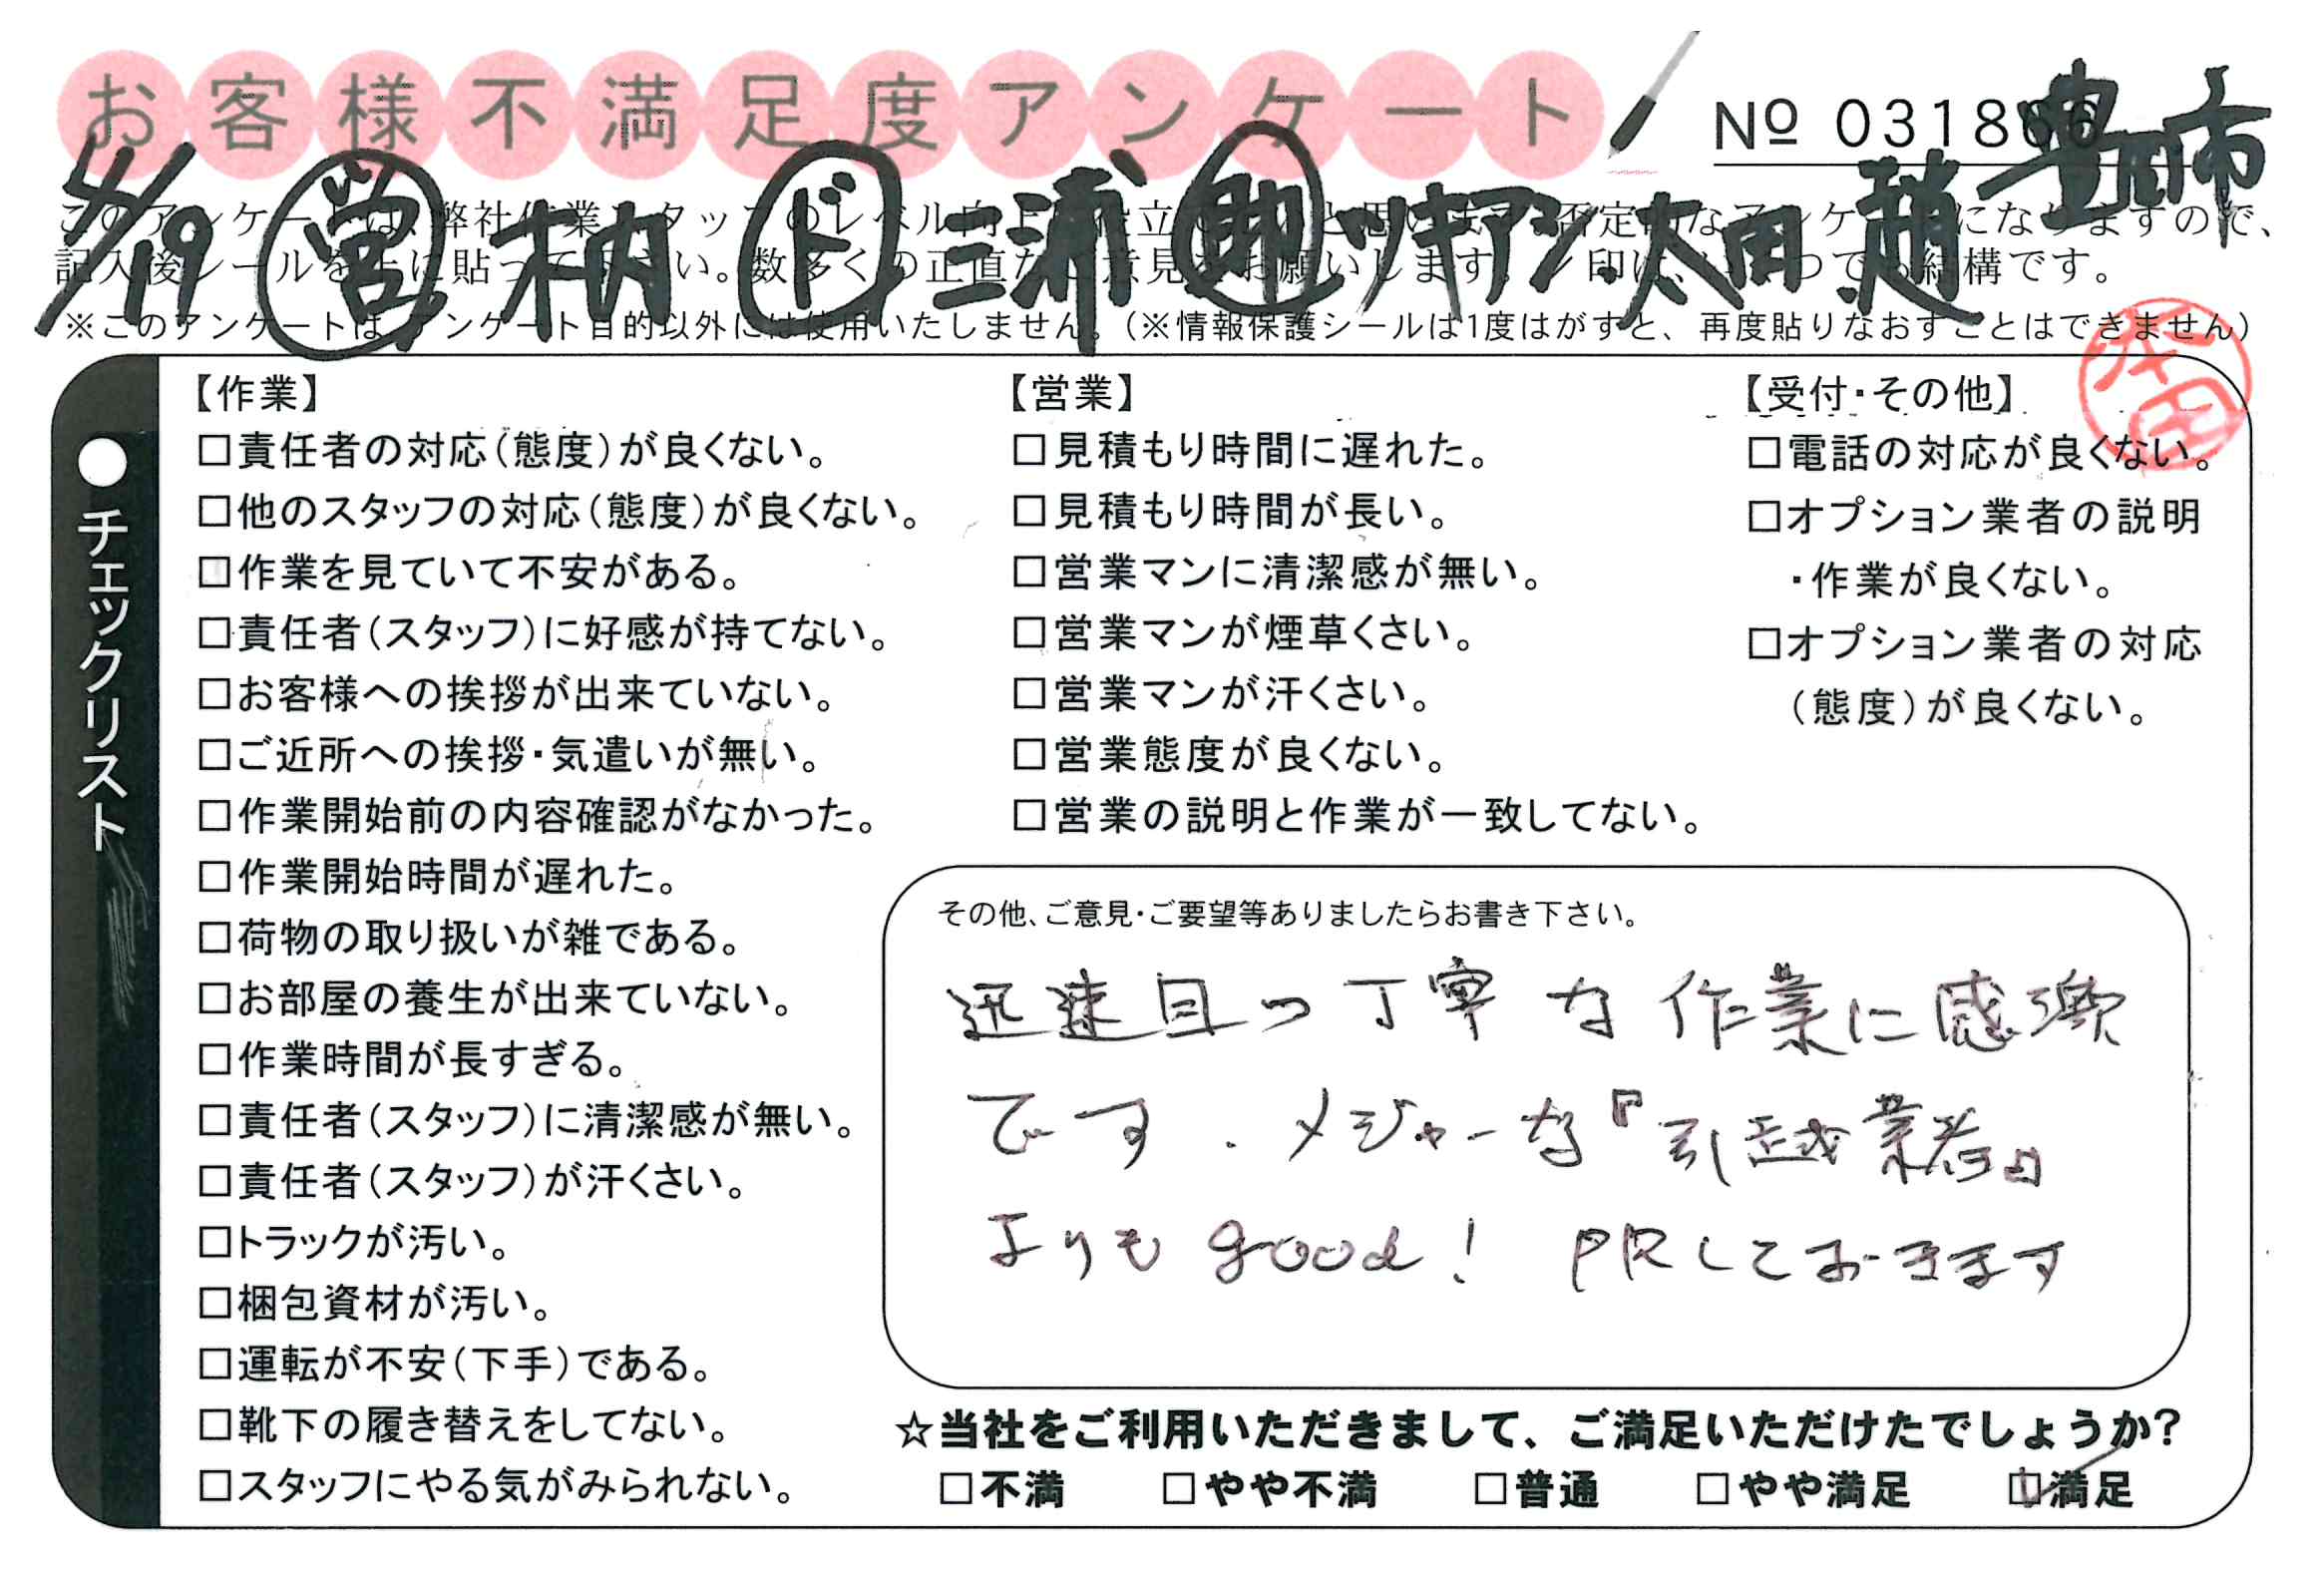 お客様不満足度アンケート
№ 031866
豊田市
4/19 営 木内 ド 三浦 助 ツギアン・太田・趙
このアンケートは、弊社作業スタッフのレベル向上に役立てたいと思います。否定的なアンケートになりますので、
記入後シールを上に貼って下さい。数多くの正直なご意見をお願いします。レ印は、いくつでも結構です。
※このアンケートは、アンケート目的以外には使用いたしません。(※情報保護シールは1度はがすと、再度貼りなおすことはできません)
本田
●チェックリスト
【作業】
□責任者の対応(態度)が良くない。
□他のスタッフの対応(態度)が良くない。
□作業を見ていて不安がある。
□責任者(スタッフ)に好感が持てない。
□お客様への挨拶が出来ていない。
□ご近所への挨拶・気遣いが無い。
□作業開始前の内容確認がなかった。
□作業開始時間が遅れた。
□荷物の取り扱いが雑である。
□お部屋の養生が出来ていない。
□作業時間が長すぎる。
□責任者(スタッフ)に清潔感が無い。
□責任者(スタッフ)が汗くさい。
□トラックが汚い。
□梱包資材が汚い。
□運転が不安(下手)である。
□靴下の履き替えをしてない。
□スタッフにやる気がみられない。
【営業】
□見積もり時間に遅れた。
□見積もり時間が長い。
□営業マンに清潔感が無い。
□営業マンが煙草くさい。
□営業マンが汗くさい。
□営業態度が良くない。
□営業の説明と作業が一致してない。
【受付・その他】
□電話の対応が良くない。
□オプション業者の説明
・作業が良くない。
□オプション業者の対応
(態度)が良くない。
その他、ご意見・ご要望等ありましたらお書き下さい。
迅速且つ丁寧な作業に感激
です。メジャーな『引越業者』
よりも good! PRしておきます
☆当社をご利用いただきまして、ご満足いただけたでしょうか?
□不満 □やや不満 □普通 □やや満足 ☑満足